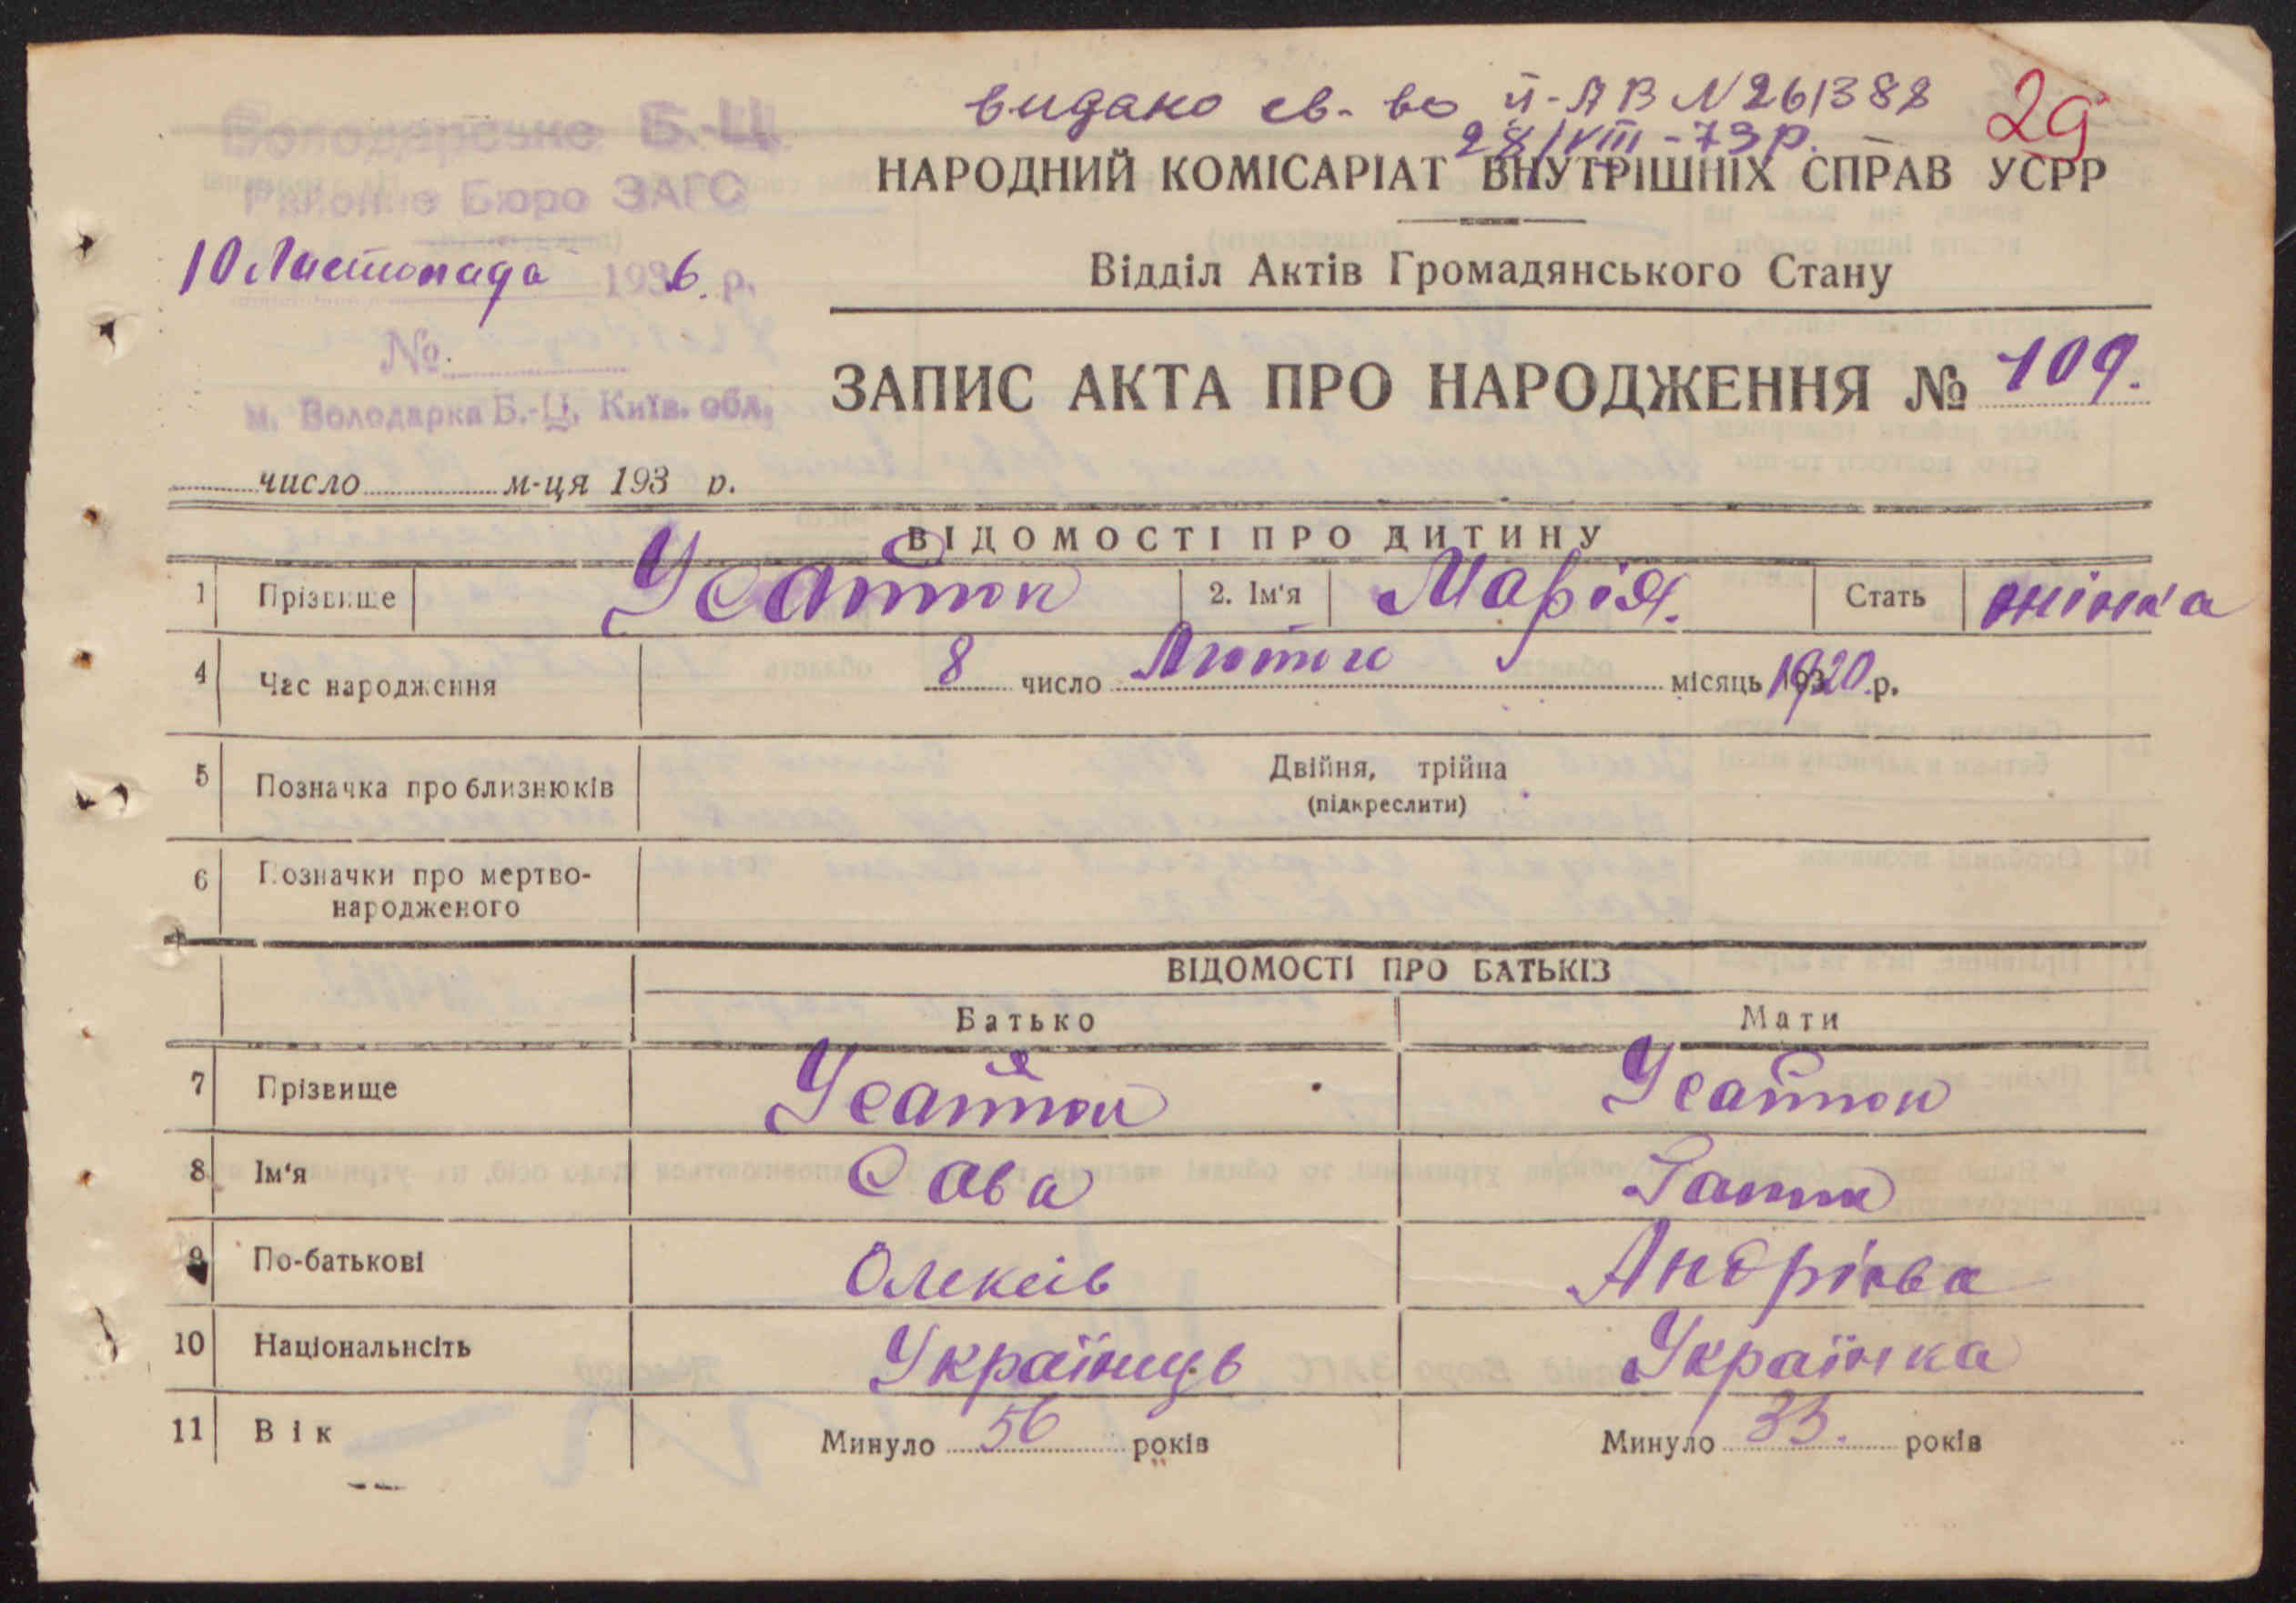 видано св-во ІІ-АВ N 261388
28/VIII-73 р.
29
Володарське Б.-Ц.
Районне Бюро ЗАГС
10 Листопада 1936. р.
№
м. Володарка Б.-Ц. Київ. обл.
НАРОДНИЙ КОМІСАРІАТ ВНУТРІШНІХ СПРАВ УСРР
Відділ Актів Громадянського Стану
ЗАПИС АКТА ПРО НАРОДЖЕННЯ № 109.
число м-ця 193 р.
ВІДОМОСТІ ПРО ДИТИНУ
1 Прізвище Усатюк 2. Ім'я Марія. Стать жінка
4 Час народження 8 число Лютого місяць 1920 р.
5 Позначка про близнюків Двійня, трійна
(підкреслити)
6 Позначки про мертво-
народженого
ВІДОМОСТІ ПРО БАТЬКІВ
Батько Мати
7 Прізвище Усатюк Усатюк
8 Ім'я Сава Ганна
9 По-батькові Олексів Андрієва
10 Національнсіть Українець Українка
11 Вік Минуло 56 років Минуло 33. років